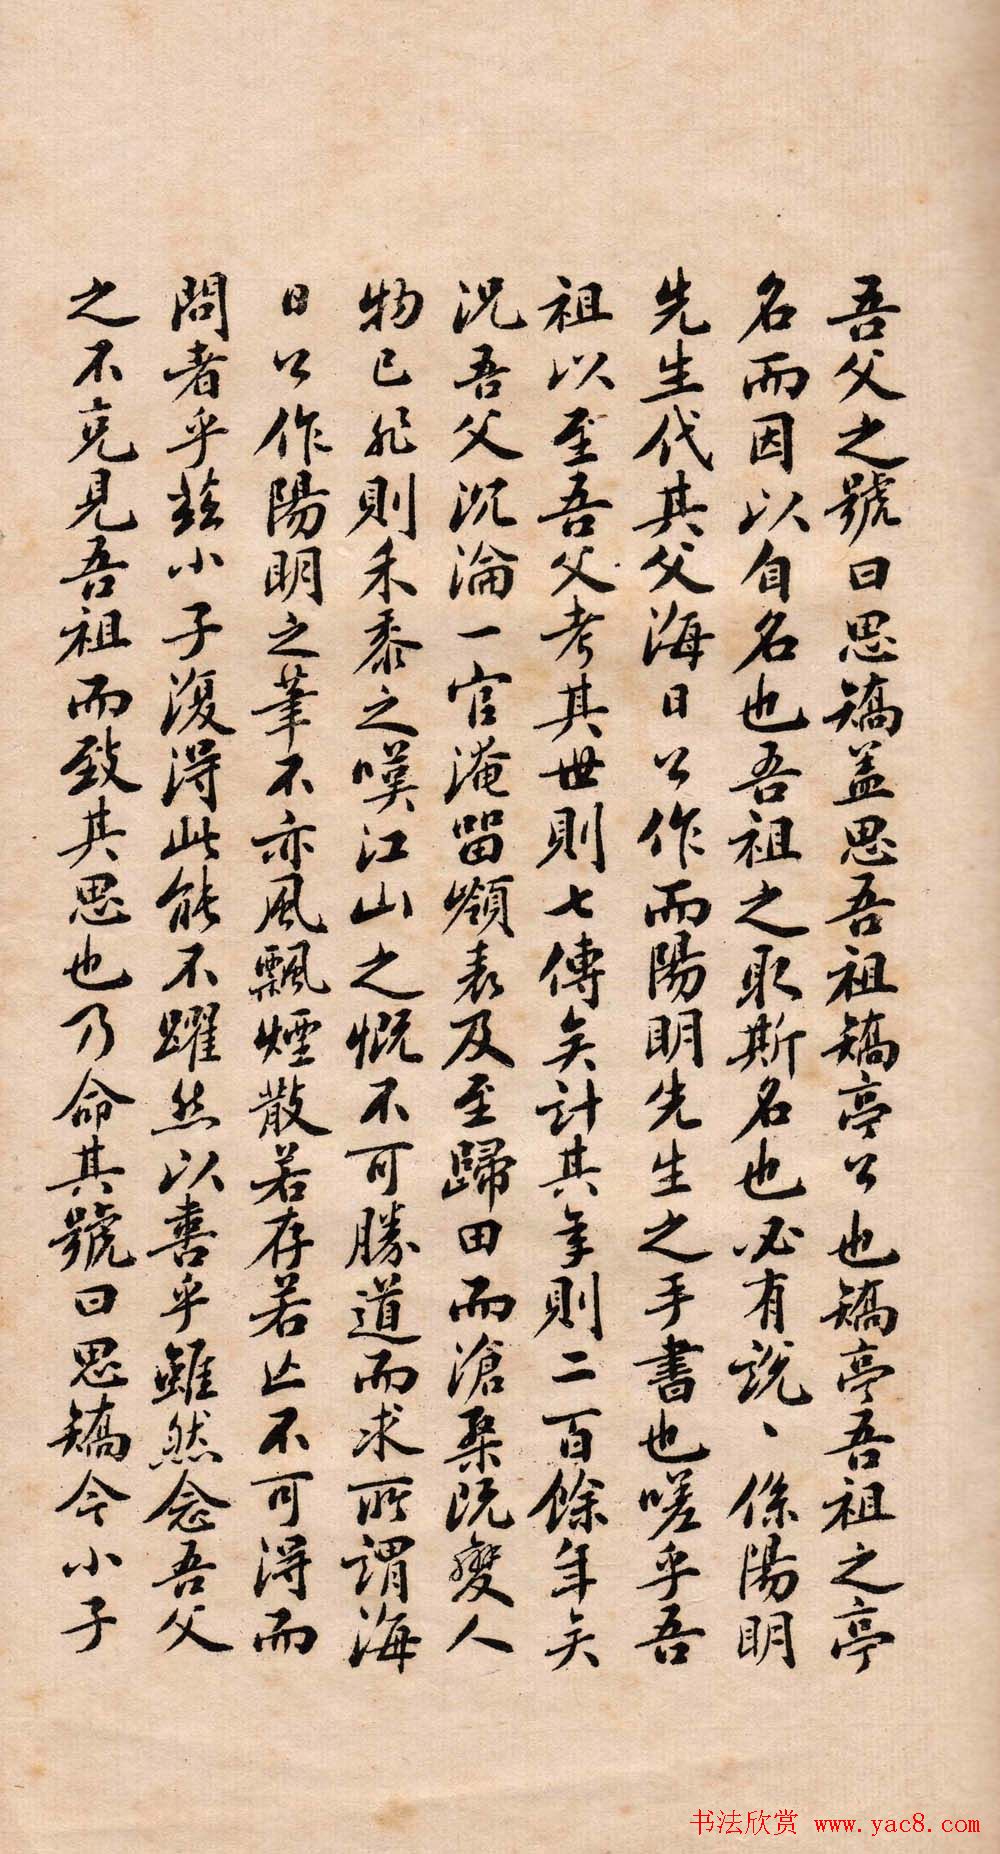 吾父之號曰思矯盖思吾祖矯亭公也矯亭吾祖之亭
名而因以自名也吾祖之取斯名也必有說、係陽明
先生代其父海日公作而陽明先生之手書也嗟乎吾
祖以至吾父考其世則七傳矣計其年則二百餘年矣
況吾父沉淪一官淹留嶺表及至歸田而滄桑既變人
物已非則禾黍之嘆江山之慨不可勝道而求所謂海
日公作陽明之筆不亦風飄煙散若存若亡不可得而
問者乎茲小子復得此能不躍然以喜乎雖然念吾父
之不克見吾祖而致其思也乃命其號曰思矯今小子
书法欣赏 www.yac8.com